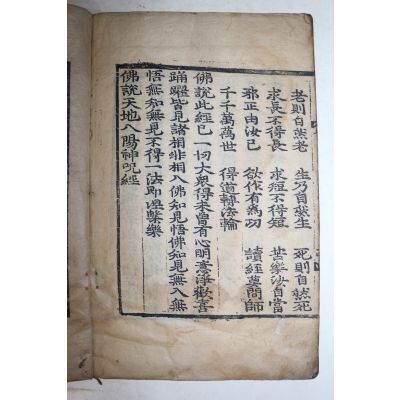 老則自然老　生乃自然生　死則自然死
求長不得長　求短不得短　苦樂汝自當
邪正由汝已　欲作有爲功　讀經莫問師
千千萬萬世　得道轉法輪
佛說此經已一切大衆得未曾有心明意淨歡喜
踊躍皆見諸相非相入佛知見悟佛知見無入無
悟無知無見不得一法即涅槃樂
佛說天地八陽神呪經